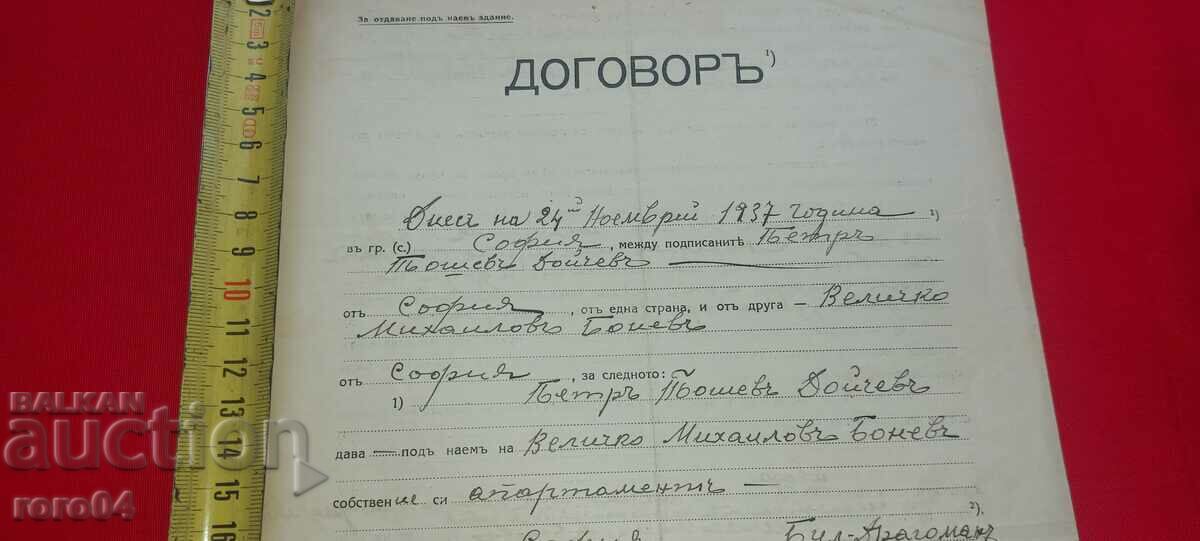 За отдаване подъ наемъ здание.
ДОГОВОРЪ¹)
Днесъ на 24ий Ноемврий 1937 година ²)
въ гр. (с.) София, между подписанитѣ Петръ
Тошевъ Дойчевъ
отъ София, отъ една страна, и отъ друга – Величко
Михаиловъ Боневъ
отъ София, за следното:
1) Петръ Тошевъ Дойчевъ
дава — подъ наемъ на Величко Михаиловъ Боневъ
собствение си апартаментъ —
²),
София Бул-Драгоманъ
2 3 4 5 6 7 8 9 10 11 12 13 14 15 16
BALKAN
auction
roro04